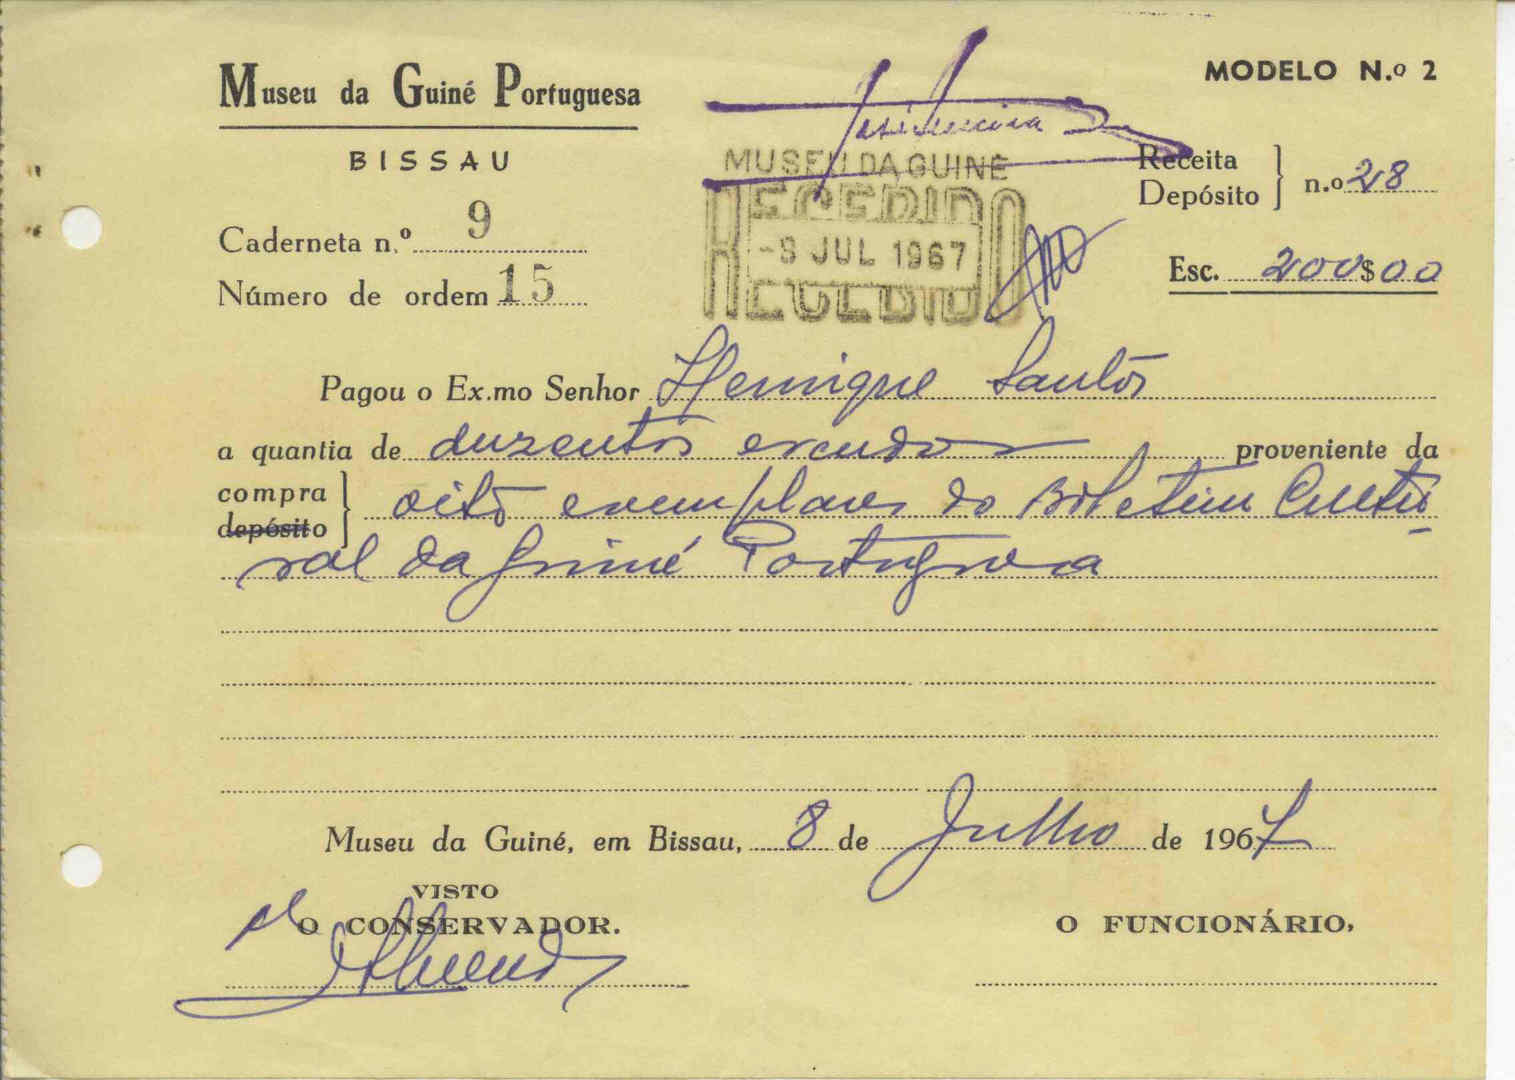 Museu da Guiné Portuguesa
BISSAU
MODELO N.º 2
MUSEU DA GUINÉ
RECEBIDO
-8 JUL 1967
RECEBIDO
Receita
Depósito } n.º 28
Caderneta n.º 9
Número de ordem 15
Esc. 200$00
Pagou o Ex.mo Senhor Henrique Santos
a quantia de duzentos escudos proveniente da
compra
depósito } oito exemplares do Boletim Cultu
ral da Guiné Portuguesa
Museu da Guiné, em Bissau, 8 de Julho de 1967
VISTO
O CONSERVADOR.
O FUNCIONÁRIO,